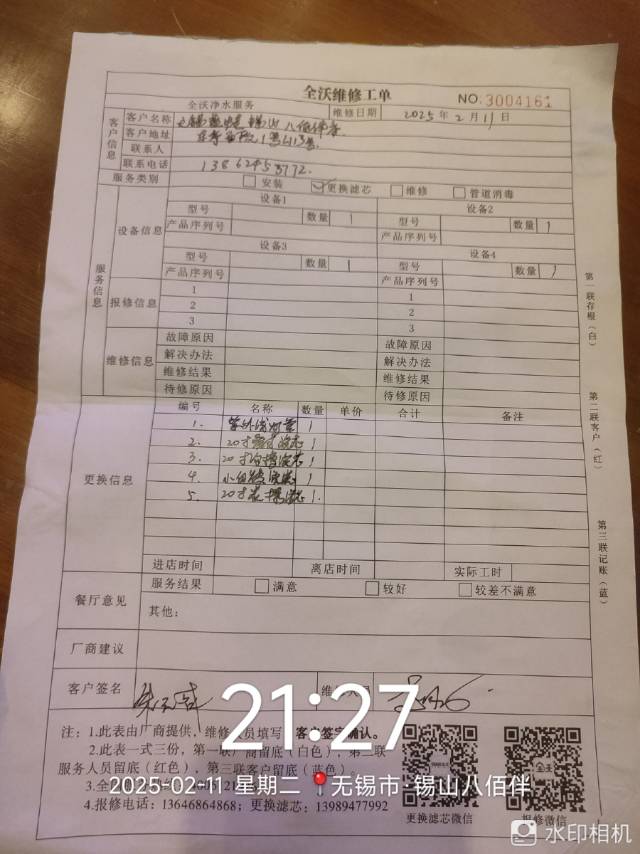 全沃维修工单
NO:3004161
全沃净水服务
维修日期 2025年2月11日
客户信息
客户名称 锡山八佰伴
客户地址 1号413号
联系人
联系电话 13862453772
服务类别 安装 更换滤芯 维修 管道消毒
服务信息
设备信息
设备1 设备2
型号 数量 1 型号 数量 1
产品序列号 产品序列号
设备3 设备4
型号 数量 1 型号 数量 1
产品序列号 产品序列号
报修信息
1 1
2 2
3 3
维修信息
故障原因 故障原因
解决办法 解决办法
维修结果 维修结果
待修原因 待修原因
更换信息
编号 名称 数量 单价 合计 备注
1. 紫外线灯管 1
2. 20寸滤芯 1
3. 20寸滤芯 1
4. 滤芯 1
5. 20寸滤芯 1.
进店时间 离店时间 实际工时
餐厅意见
服务结果 满意 较好 较差不满意
其他:
厂商建议
客户签名
第一联存根(白)
第二联客户(红)
第三联记账(蓝)
注:1.此表由厂商提供,维修人员填写,客户签字确认。
2.此表一式三份,第一联厂商留底(白色),第二联
服务人员留底(红色),第三联客户留底(蓝色)
3.全
4.报修电话:13646864868;更换滤芯:13989477992
更换滤芯微信 报修微信
21:27
2025-02-11 星期二 无锡市·锡山八佰伴
水印相机